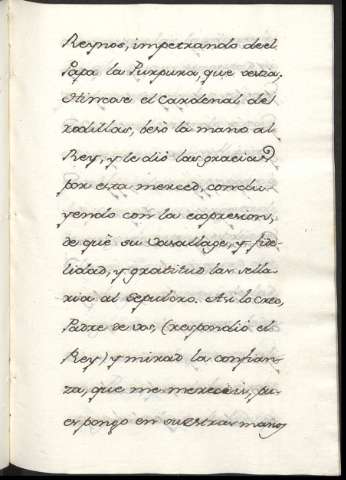 Reynos, impetrando deel
Papa la Purpura, que vestia,
Hincose el Cardenal de
rodillas, besò la mano al
Rey, y le diò las gracias
por esta merced, conclu-
yendo con la expresion,
de què su Vasallage, y fide-
lidad, y gratitud las sella-
ria al Sepulcro. Asi lo creo,
Padre de vos, (respondiò el
Rey) y mirad la confian-
za, que me mereceis, pu-
es pongo en vuestras manos